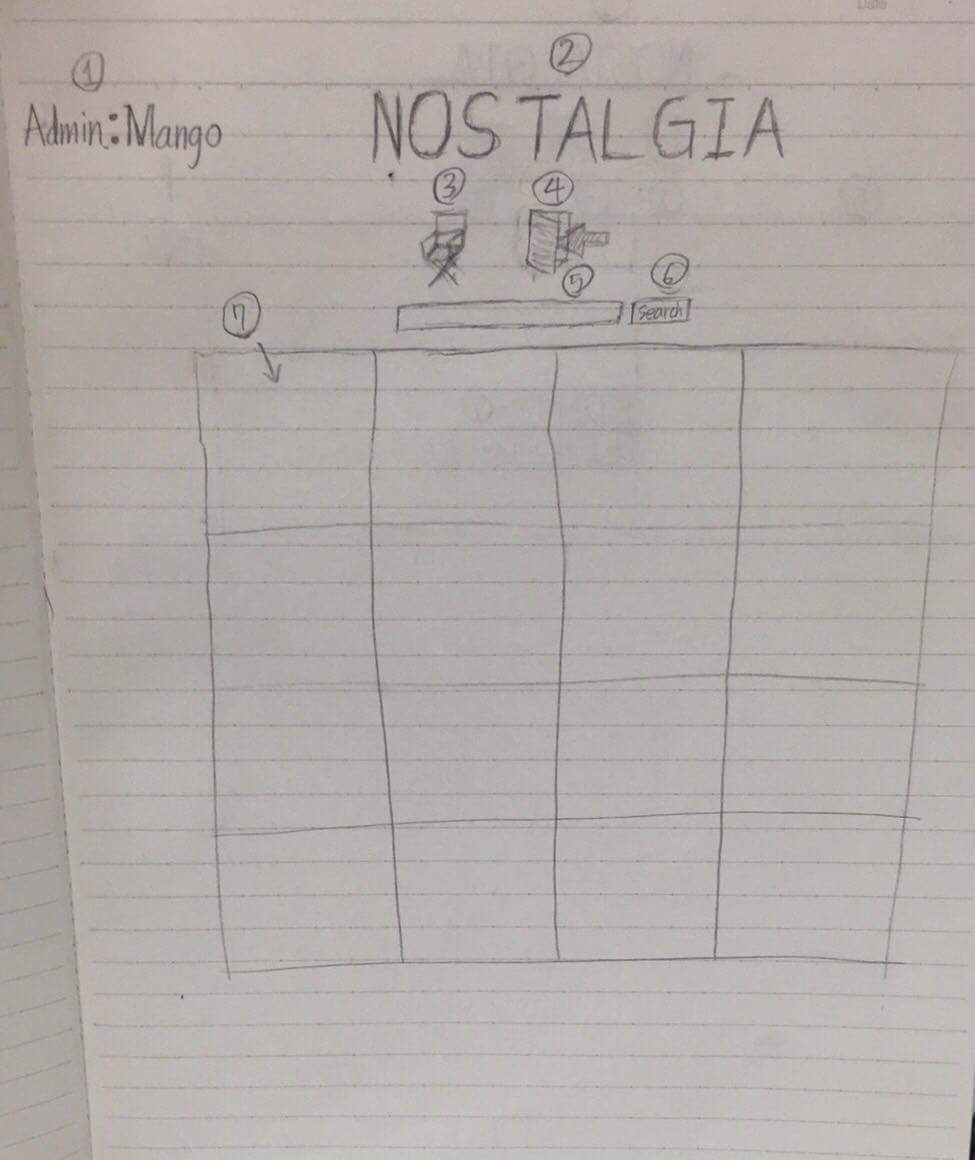 ②
①
Admin: Mango
NOSTALGIA
③ ④
⑤ ⑥
Search
⑦